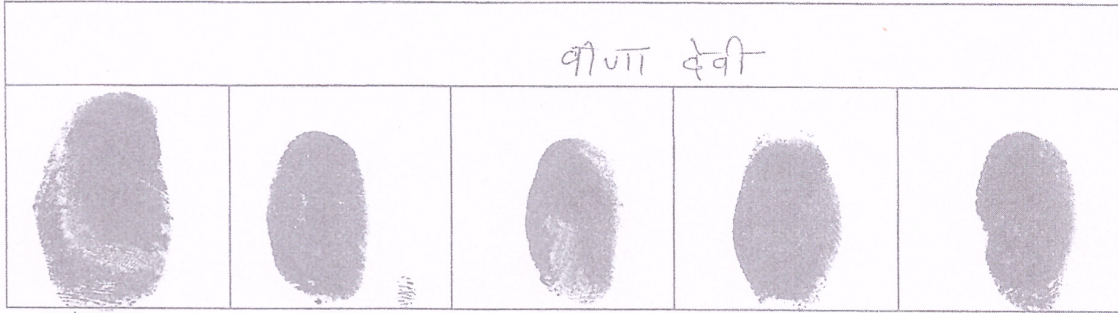 वीणा देवी